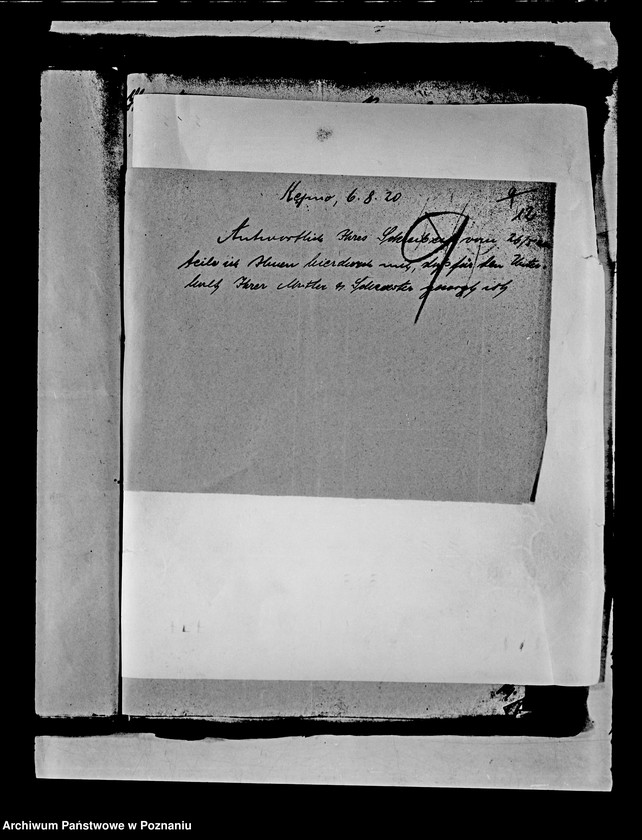 Kępno, 6.8.20
9
12
Antwortlich Ihres Schreibens vom 26/7 20
teile ich Ihnen hierdurch mit, daß für den Unter-
halt Ihrer Mutter u. Schwester gesorgt ist
Archiwum Państwowe w Poznaniu